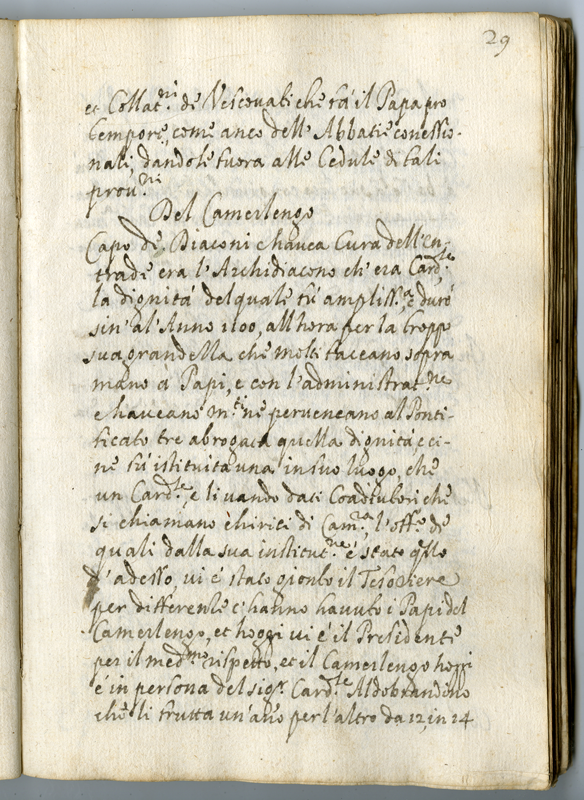 29
et Collat.ni de Vescovati che fà il Papa pro
tempore, come anco dell'Abbatie concesso-
nali, dandole fuora alle Cedule di tali
prov.ni
Del Camerlengo
Capo de Diaconi c'havea Cura dell'en-
trade era l'Archidiacono ch'era Card.le
la dignità del quale fù ampliss.a, e durò
sin'al'Anno 1100, all'hora per la troppo
sua grandezza che molti faceano sopra
mano à Papi, e con l'administrat.ne
c'haveano m.ti ne perveneano al Ponti-
ficato fre abrogata quella dignità, e ci-
ne fù istituita una in suo luogo, che
un Card.le, e li vando dati Coadiutori che
si chiamano chirici di Cam.ra, l'off.o de
quali dalla sua institut.ne è stato q.llo
d'adesso, vi è stato gionto il Tesoriere
per differente c'hanno havuto i Papi del
Camerlengo, et hoggi vi è il Presidente
per il med.mo rispetto, et il Camerlengo hoggi
è in persona del sig.r Card.le Aldobrandino
che li frutta un'año per l'altro da 12, in 14